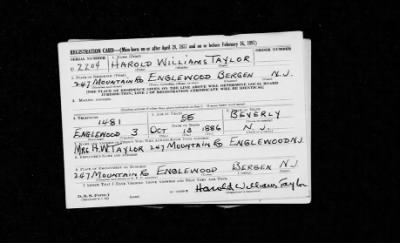 REGISTRATION CARD—(Men born on or after April 28, 1877 and on or before February 16, 1897)
SERIAL NUMBER 1. NAME (Print) ORDER NUMBER
U 2204 HAROLD WILLIAMS TAYLOR
2. PLACE OF RESIDENCE (Print)
247 MOUNTAIN RD ENGLEWOOD BERGEN N.J.
[THE PLACE OF RESIDENCE GIVEN ON THE LINE ABOVE WILL DETERMINE LOCAL BOARD
JURISDICTION; LINE 2 OF REGISTRATION CERTIFICATE WILL BE IDENTICAL]
3. MAILING ADDRESS
4. TELEPHONE 5. AGE IN YEARS 6. PLACE OF BIRTH
1481 55 BEVERLY
DATE OF BIRTH
ENGLEWOOD 3 OCT 13 1886 N.J.
MRS H.W. TAYLOR 247 MOUNTAIN RD ENGLEWOOD N.J.
8. EMPLOYER'S NAME AND ADDRESS
9. PLACE OF EMPLOYMENT OR BUSINESS
247 MOUNTAIN RD ENGLEWOOD BERGEN N.J.
I AFFIRM THAT I HAVE VERIFIED ABOVE ANSWERS AND THAT THEY ARE TRUE.
Harold Williams Taylor